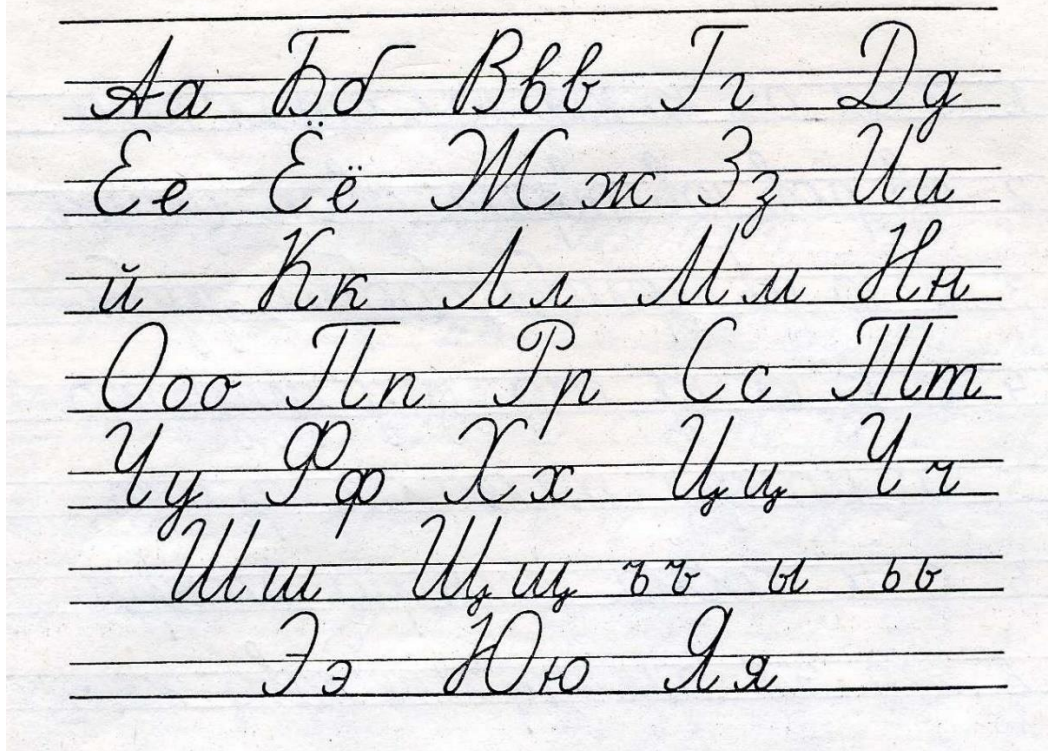 Аа Бб Ввв Гг Дд
Ее Ёё Жж Зз Ии
й Кк Лл Мм Нн
Ооо Пп Рр Сс Тт
Уу Фф Хх Цц Чч
Шш Щщ ъъ ы ьь
Ээ Юю Яя